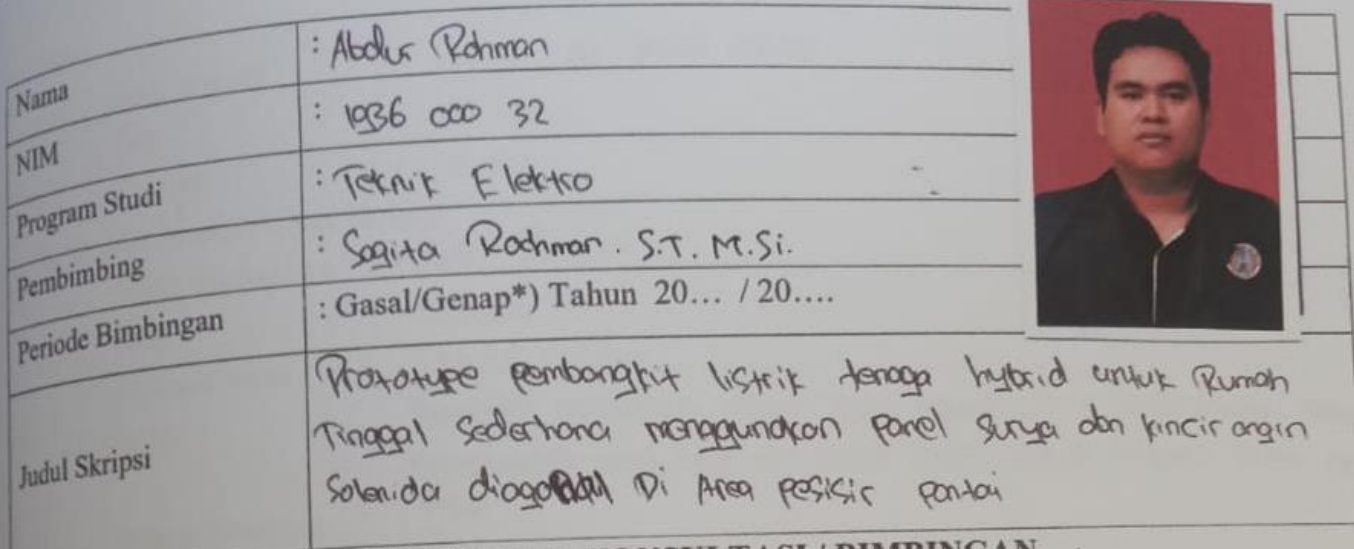 Nama : Abdur Rohman
NIM : 1936 000 32
Program Studi : Teknik Elektro
Pembimbing : Sagita Rochman. S.T. M.Si.
Periode Bimbingan : Gasal/Genap*) Tahun 20... / 20....
Judul Skripsi
Prototype pembangkit listrik tenaga hybrid untuk Rumah
Tinggal Sederhana menggunakan panel surya dan kincir angin
Solenida diagonal Di Area pesisir pantai
BIMBINGAN